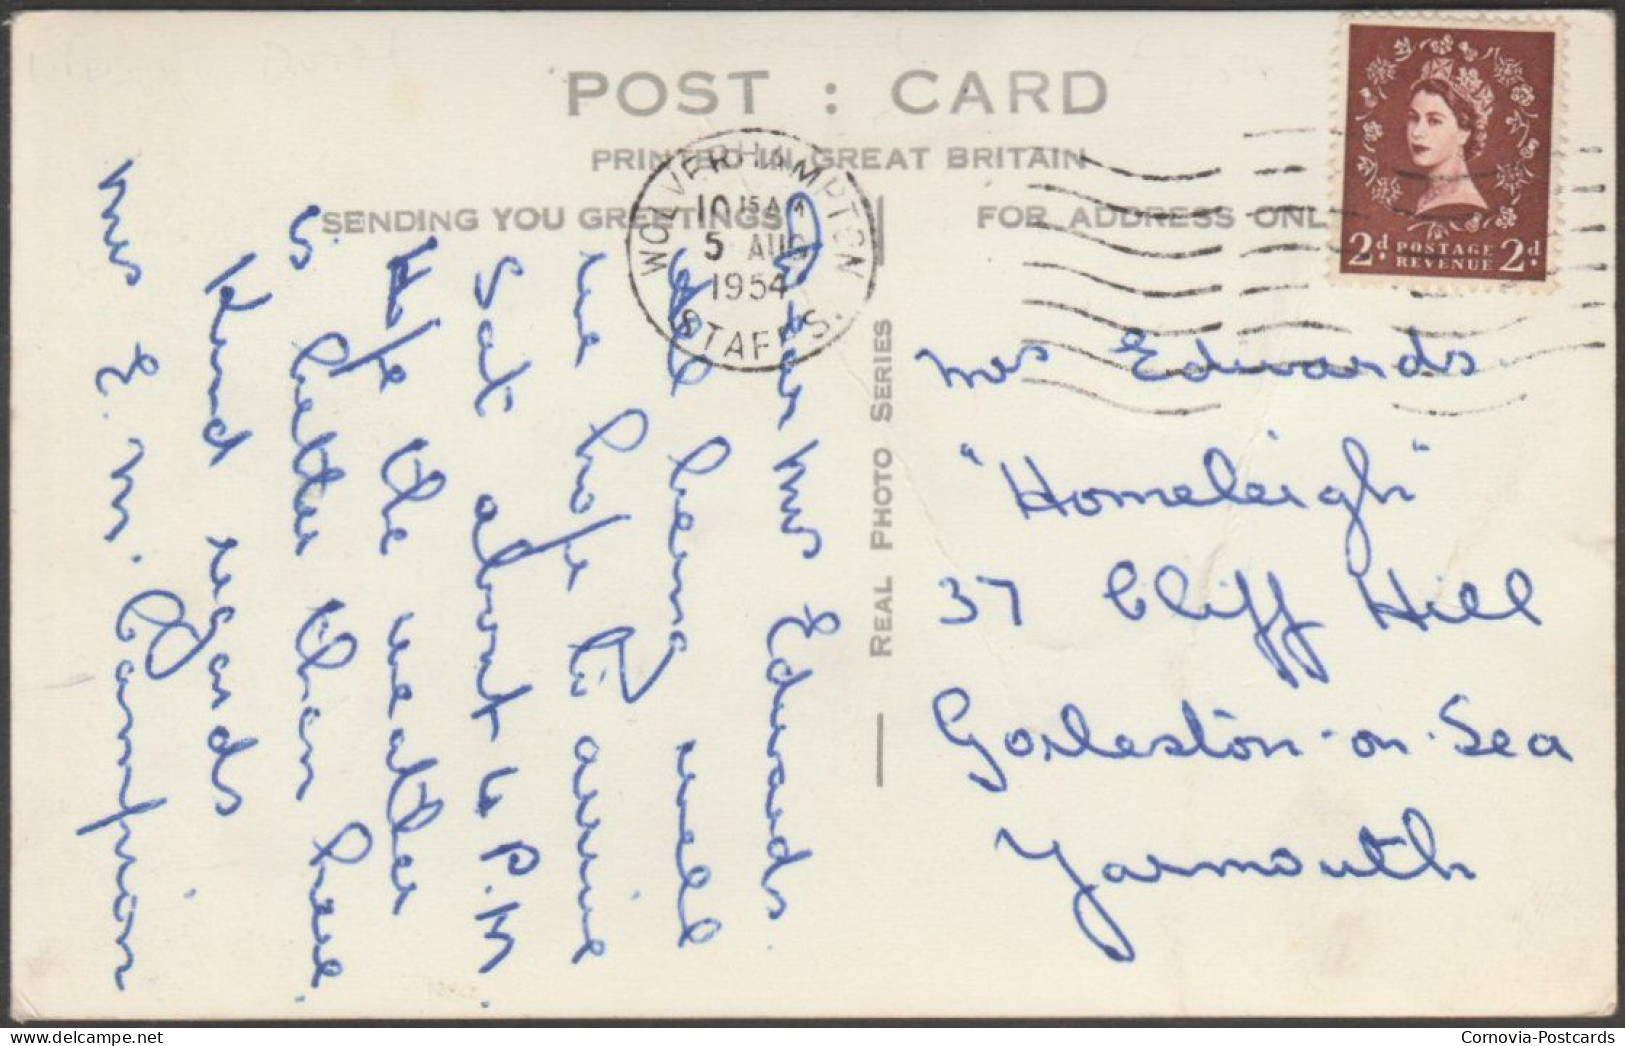 POST : CARD
PRINTED IN GREAT BRITAIN
SENDING YOU GREETINGS
FOR ADDRESS ONL
REAL PHOTO SERIES
WOLVERHAMPTON
10 15 AM
5 AUG
1954
STAFFS.
2d. POSTAGE 2d.
REVENUE
Dear Mrs Edwards.
All being well
we hope to arrive
Sat about 4 P.M.
Hope the weather
is better than here.
Kind regards
Mrs E. M. Campion
Mrs Edwards
"Homeleigh"
37 Cliff Hill
Gorleston-on-Sea
Yarmouth
Cornovia-Postcards